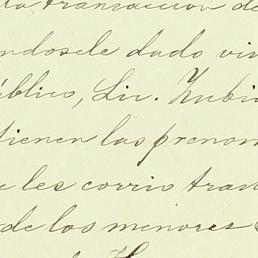 ta transaccion de
éndosele dado vis
úblico, Lic. Zubia
tienen las prenom
e les corrio tras
de los menores